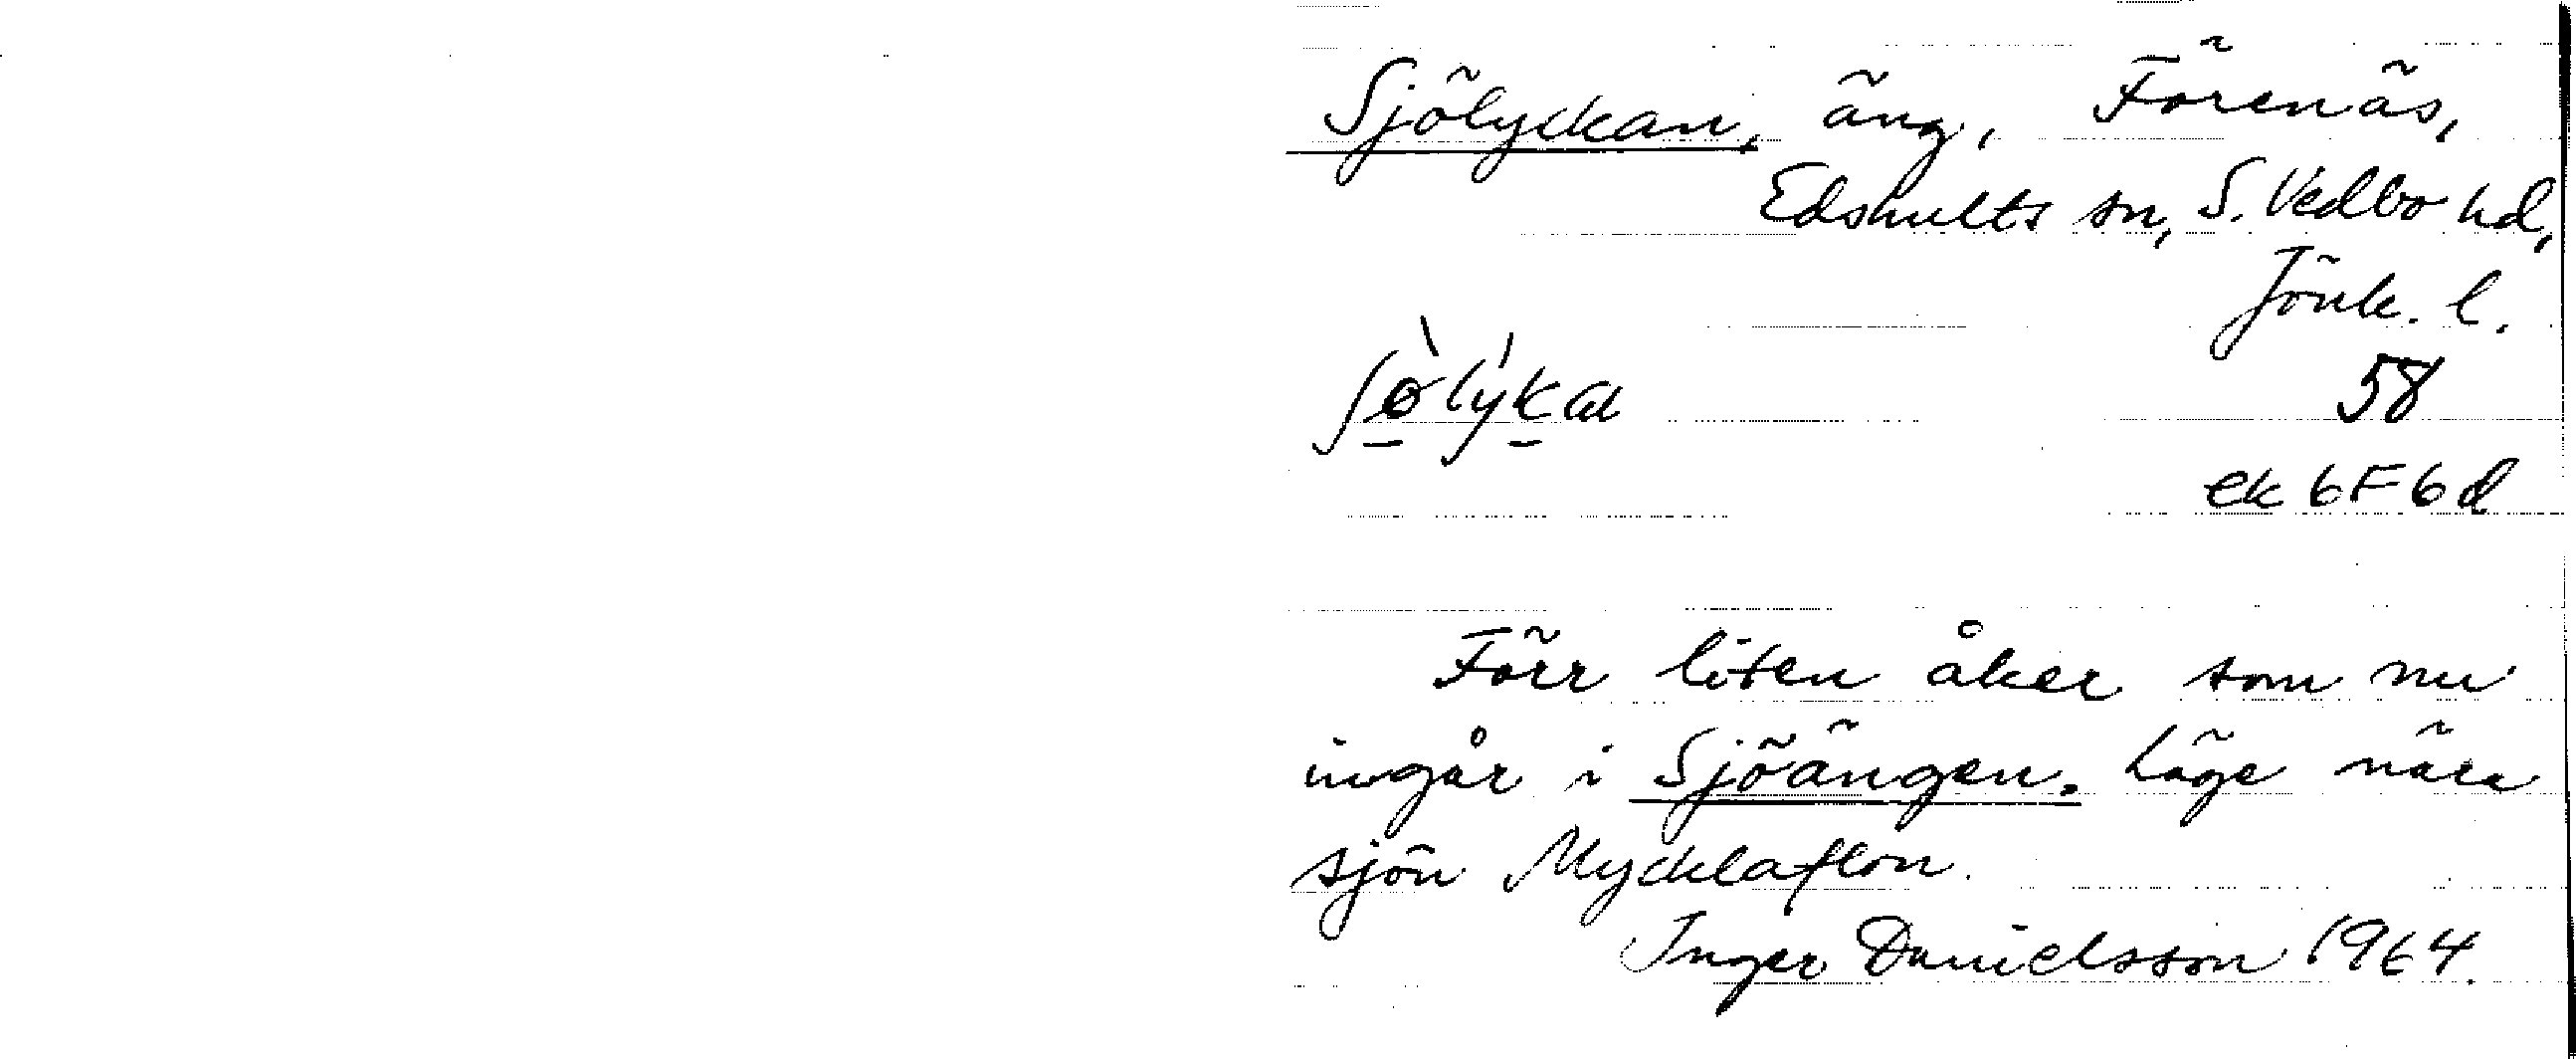 Sjölyckan, äng, Förenäs,
Edshults sn, S. Vedbo hd,
Jönk. l.
ʃø̠̀lýk̠a
58
ek 6F6d
Förr liten åker som nu
ingår i Sjöängen. Läge nära
sjön Mycklaflon.
Inger Danielsson 1964.